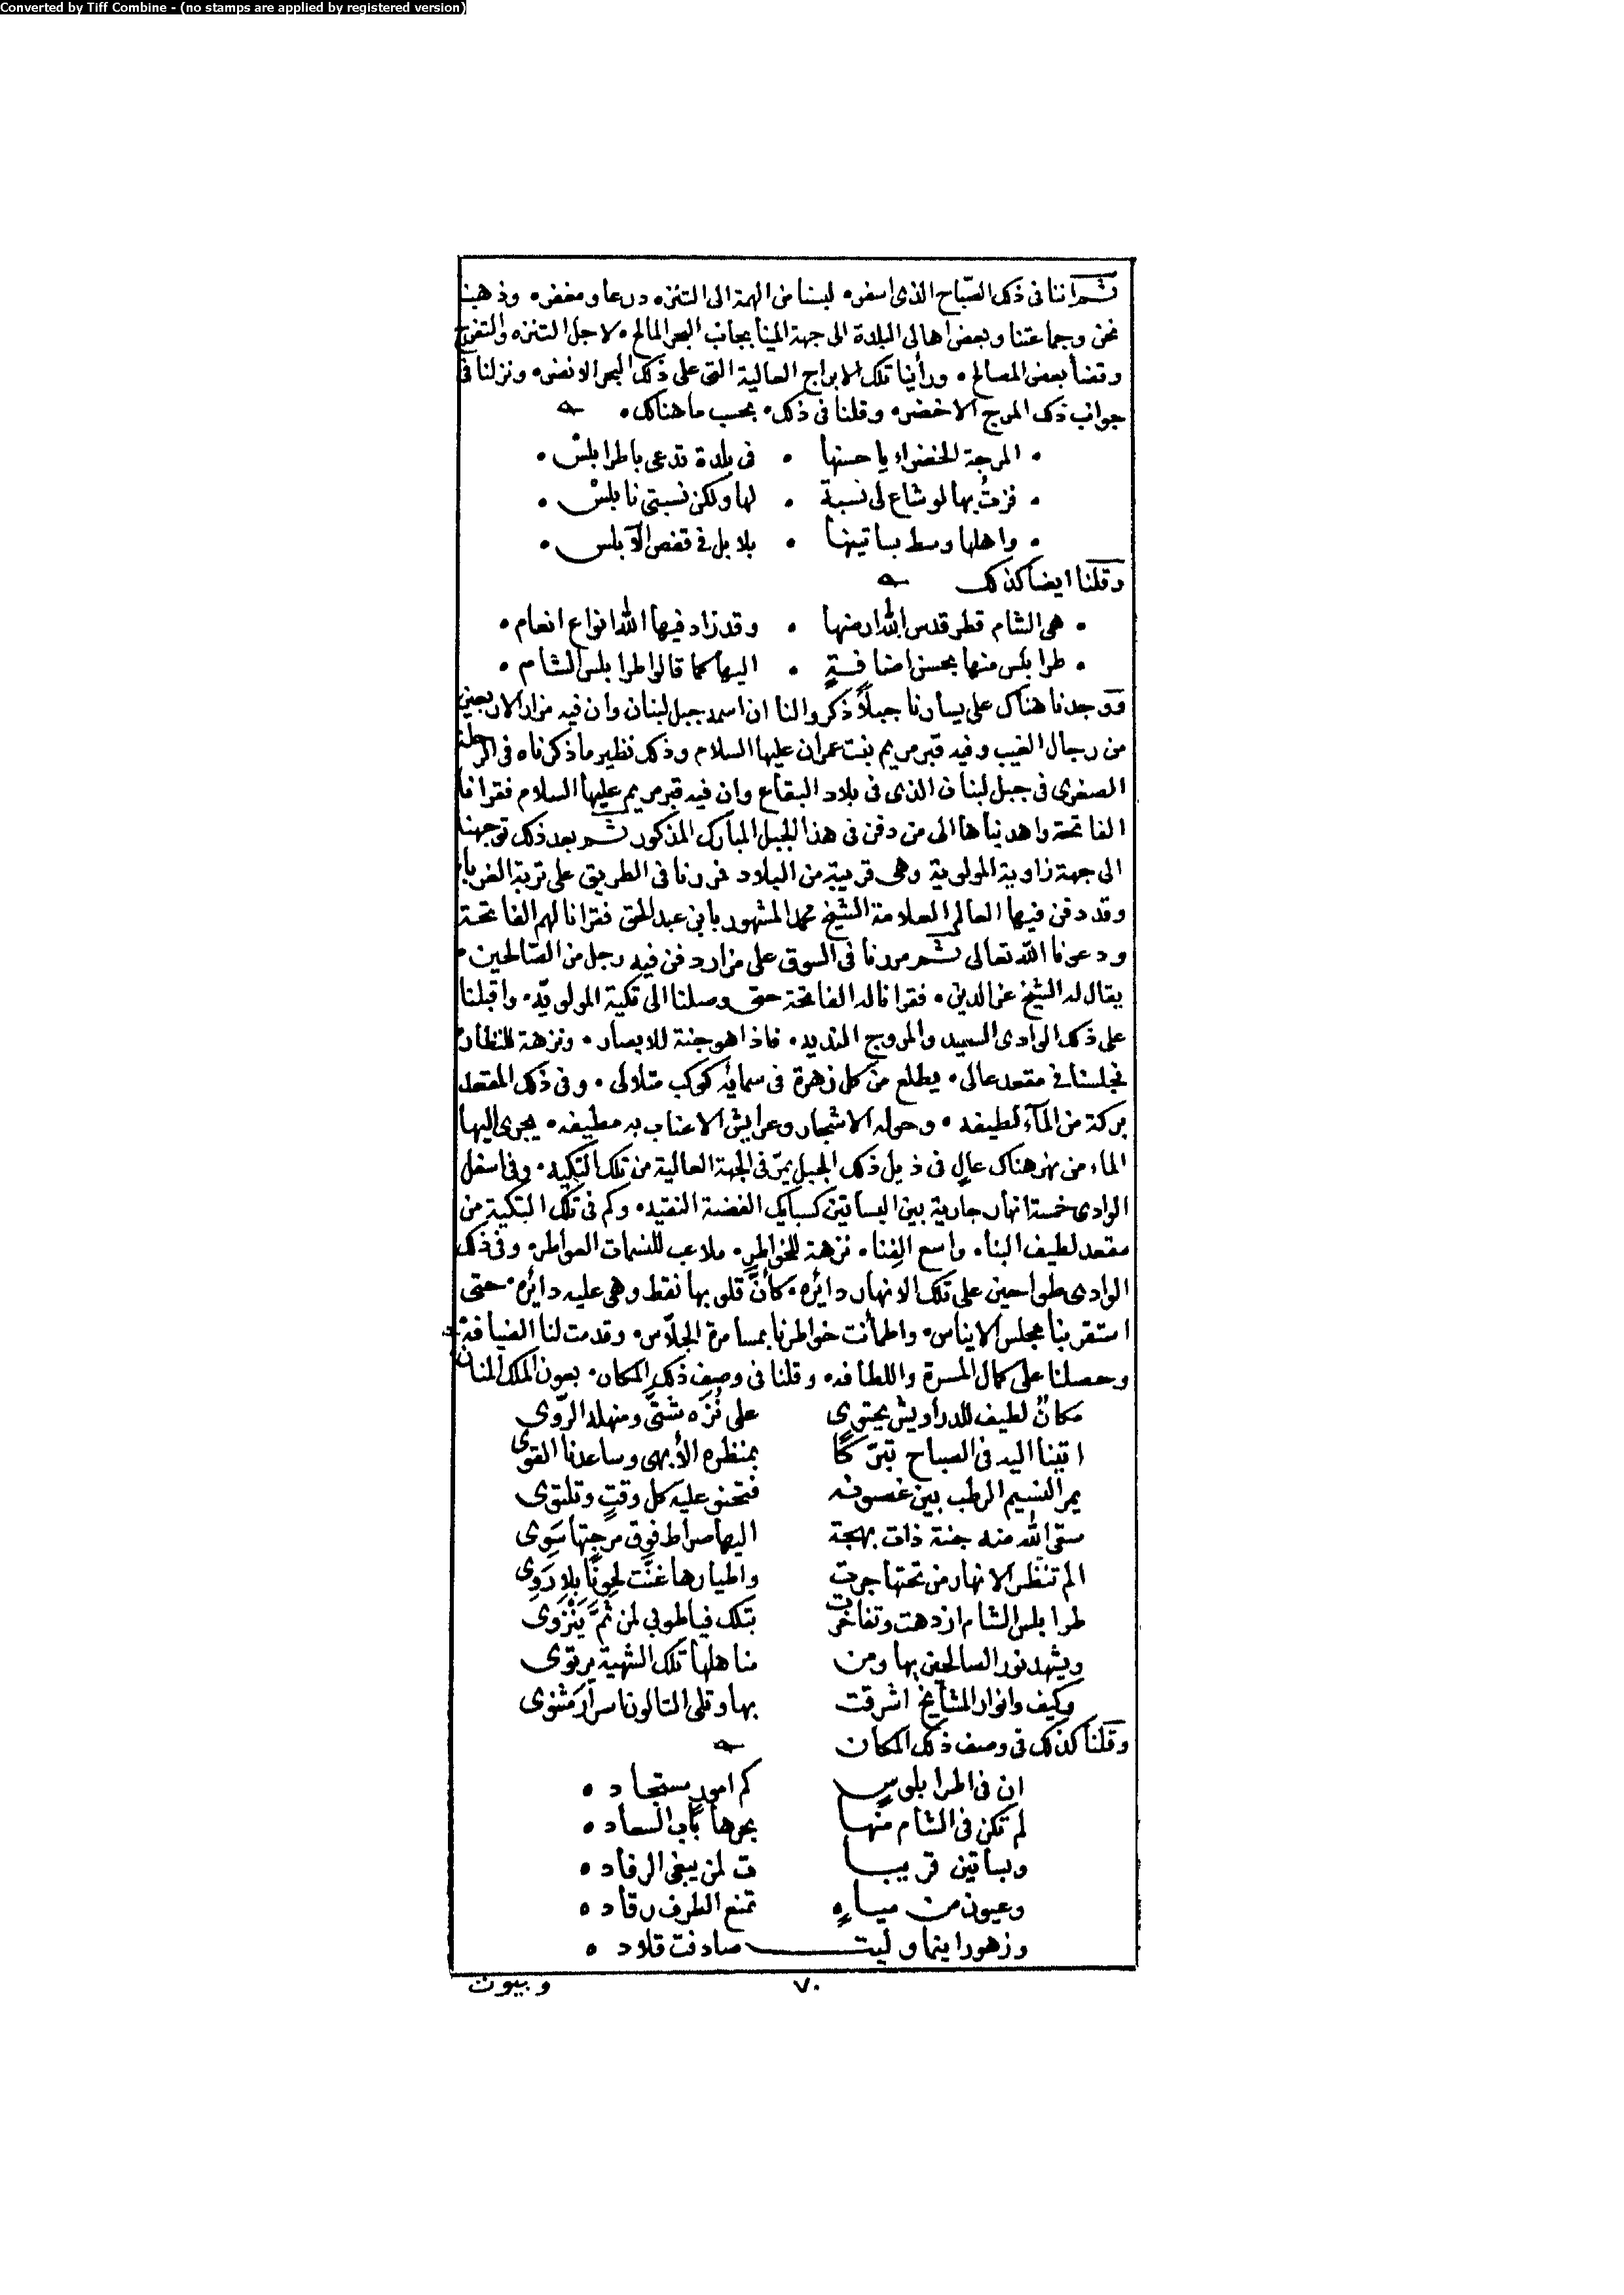 Converted by Tiff Combine - (no stamps are applied by registered version)
ثم اننا فى ذلك الصّباح الذى اسفر ۰ لبسنا من الهمة الى التنزه درعا ومغفر ۰ وذهبنا
نحن وجماعتنا وبعض اهالى البلدة الى جهة المينا بجانب البحر المالح ۰ لاجل التنزه والتفرج
وقضأ بعض المصالح ۰ ورأينا تلك الابراج العالية التى على ذلك البحر الانضر ۰ ونزلنا فى
جوانب ذلك المرج الاخضر ۰ وقلنا فى ذلك ۰ بحسب ما هنالك ۰
۰ المرجة الخضراء يا حسنها ۰ فى بلدة تدعى باطرابلسْ ۰
۰ نزحتُ بها لو شاع لى نسبة ۰ لها ولكن نسبتى نابلسْ ۰
۰ واهلها وسط بساتينها ۰ بلابل فى قفص الآبلس ۰
وقلنا ايضا كذلك
۰ هى الشام قطر قدس الله ارضها ۰ وقد زاد فيها الله انواع انعام ۰
۰ طرابلس منها بحسن اضافةٍ ۰ اليها كما قالوا طرابلس الشام ۰
ووجدنا هناك على يسارنا جبلاً ذكروا لنا ان اسمه جبل لبنان وان فيه مزار الاربعين
من رجال الغيب وفيه قبر مريم بنت عمران عليها السلام وذلك نظير ما ذكرناه فى الرحلة
الصغرى فى جبل لبنان الذى فى بلاد البقاع وان فيه قبر مريم عليها السلام فقرانا
الفاتحة واهديناها الى من دفن فى هذا الجبل المبارك المذكور ثم بعد ذلك توجهنا
الى جهة زاوية المولوية وهى قريبة من البلاد فمررنا فى الطريق على تربة الغرباء
وقد دفن فيها العالم العلامة الشيخ محمد المشهور بابن عبد الحق فقرانا لهم الفاتحة
ودعونا الله تعالى ثم مررنا فى السوق على مزار دفن فيه رجل من الصّالحين ۰
يقال له الشيخ عز الدين ۰ فقرانا له الفاتحة حتى وصلنا الى تكية المولويّه ۰ واقبلنا
على ذلك الوادى السعيد والمروج المنديد ۰ فاذا هو جنة للابصار ۰ ونزهة للنظار
فجلسنا فى مقعد عالى ۰ يطلع من كل زهرة فى سمائه كوكب متلالى ۰ وفى ذلك المقعد
بركة من المآء لطيفه ۰ وحوله الاشجار وعرايش الاعناب به مطيفه ۰ يجرى اليها
الماء من نهر هناك عالٍ فى ذيل ذلك الجبل يمرّ فى الجهة العالية من تلك التكيه ۰ وفى اسفل
الوادى خمسة انهار جارية بين البساتين كسبايك الفضة النقيه ۰ وكم فى تلك التكية من
مقعد لطيف البنأ ۰ واسع الفِنا ۰ نزهة للخواطر ۰ ملاعب للنسمات العواطر ۰ وفى ذلك
الوادى طواحين على تلك الانهار دائره ۰ كأنّ قلوبها نقط وهى عليه دائره ۰ حتى
استقر بنا مجلس الايناس ۰ واطمأنت خواطرنا بمسامرة الجلّاس ۰ وقدمت لنا الضيافة
وحصلنا على كمال المسرة واللطافه ۰ وقلنا فى وصف ذلك المكان ۰ بعون الملك المنان
مكانٌ لطيف للدراويش يحتوى على نُزَه شتّى ومنهله الرّوى
اتينا اليه فى الصباح تبرّكًا بمنظره الأبهى وساعدنا القوى
يمر النسيم الرطب بين غصونه فتحنو عليه كل وقتٍ وتلتوى
سقى الله منه جنة ذات بهجة اليها صراط فوق مرجتها سَوِى
الم تنظر الانهار من تحتها جرت واطيارها غنّت لحونًا بلا رَوِى
طرابلس الشام ازدهت وتفاخرت بتلك فياطوبى لمن ثَمَّ يَنْزَوى
ويشهد نور السالحين بها ومن مناهلها تلك الشهية يرتوى
وكيف وانوار المشايخ اشرقت بها وتلى التالون اسرار مَثنوى
وقلنا كذلك فى وصف ذلك المكان
ان فى اطرابلوسٍ كم امورٍ مستجاد ه
لم تكن فى الشام منها بحرها باب السعاد ه
وبساتين قريبا ت لمن يبغى الرفاد ه
وعيون من مياهٍ تمنع الطرف رقاد ه
وزهور اينما وليت صادفت قلاد ه
۷۰
وبيوت